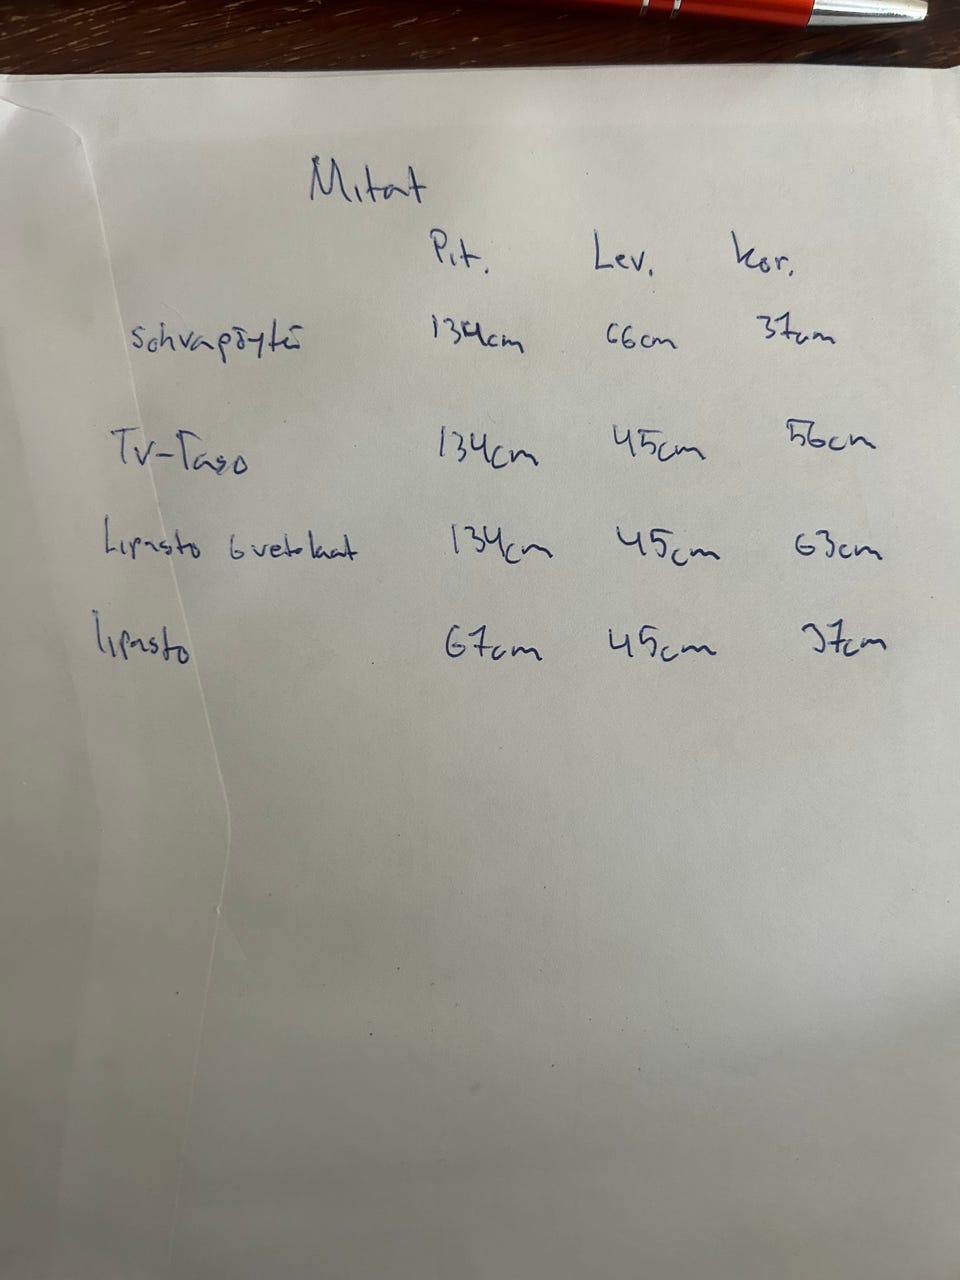 Mitat
Pit. Lev. Kor.
Sohvapöytä 134cm 66cm 37cm
TV-Taso 134cm 45cm 56cm
Lipasto 6vetolaat 134cm 45cm 63cm
lipasto 67cm 45cm 37cm